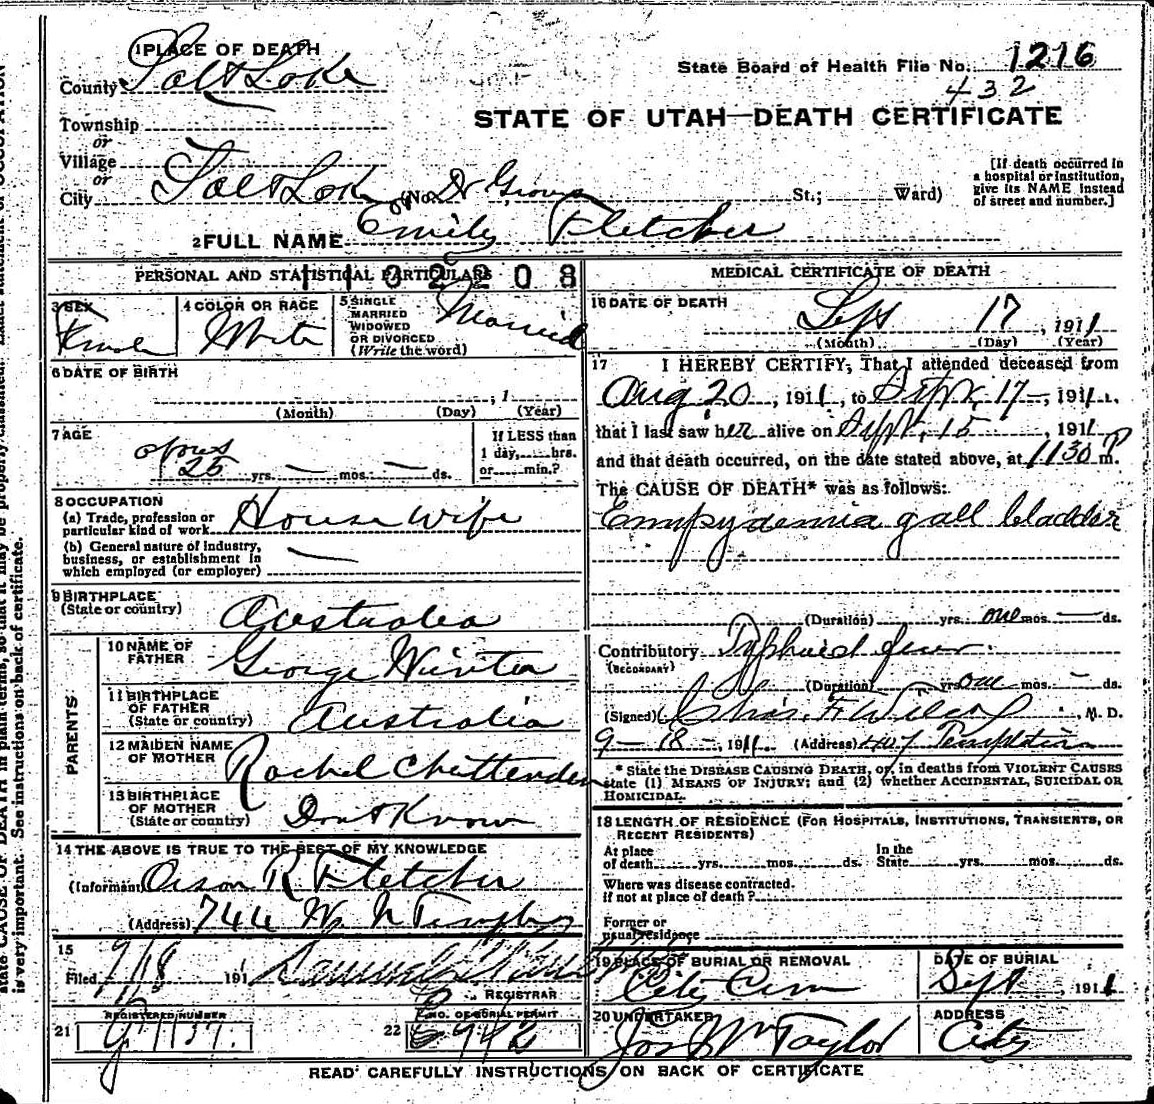 1 PLACE OF DEATH
County Salt Lake
State Board of Health File No. 1216
432
STATE OF UTAH—DEATH CERTIFICATE
Township
or
Village
or
City Salt Lake (No. Dr Groves St.; Ward)
[If death occurred in a hospital or institution, give its NAME instead of street and number.]
2 FULL NAME Emily Fletcher
PERSONAL AND STATISTICAL PARTICULARS
1102208
3 SEX Female
4 COLOR OR RACE White
5 SINGLE MARRIED WIDOWED OR DIVORCED (Write the word) Married
6 DATE OF BIRTH
, 1
(Month) (Day) (Year)
7 AGE
25 yrs. — mos. — ds.
If LESS than 1 day, hrs. or min.?
8 OCCUPATION
(a) Trade, profession or particular kind of work House wife
(b) General nature of industry, business, or establishment in which employed (or employer) —
9 BIRTHPLACE
(State or country) Australia
PARENTS
10 NAME OF FATHER George
11 BIRTHPLACE OF FATHER (State or country) Australia
12 MAIDEN NAME OF MOTHER Rachel Chittenden
13 BIRTHPLACE OF MOTHER (State or country) Dont Know
14 THE ABOVE IS TRUE TO THE BEST OF MY KNOWLEDGE
(Informant) Orson R Fletcher
(Address) 744 W. N Temple
15
Filed 9/18 191 Samuel G
REGISTRAR
21 REGISTERED NUMBER
G 1137.
22 NO. OF BURIAL PERMIT
942
MEDICAL CERTIFICATE OF DEATH
16 DATE OF DEATH
Sept 17, 1911
(Month) (Day) (Year)
17 I HEREBY CERTIFY, That I attended deceased from
Aug 20, 1911, to Sept. 17—, 1911.
that I last saw her alive on Sept. 15, 1911
and that death occurred, on the date stated above, at 1130 P m.
The CAUSE OF DEATH* was as follows:
Empydemia gall bladder
(Duration) yrs. one mos. — ds.
Contributory Typhoid fever.
(SECONDARY)
(Duration) yrs. one mos. - ds.
(Signed) Chas. F. Wilcox, M. D.
9-18-, 1911. (Address) 407 Templeton
* State the DISEASE CAUSING DEATH, or, in deaths from VIOLENT CAUSES
state (1) MEANS OF INJURY; and (2) whether ACCIDENTAL, SUICIDAL OR
HOMICIDAL.
18 LENGTH OF RESIDENCE (FOR HOSPITALS, INSTITUTIONS, TRANSIENTS, OR
RECENT RESIDENTS)
At place of death yrs. mos. ds. In the State yrs. mos. ds.
Where was disease contracted.
if not at place of death?
Former or
usual residence
19 PLACE OF BURIAL OR REMOVAL
City Cem
DATE OF BURIAL
Sept , 1911
20 UNDERTAKER
Jos Wm Taylor
ADDRESS
City
READ CAREFULLY INSTRUCTIONS ON BACK OF CERTIFICATE
is very important. See instructions on back of certificate.